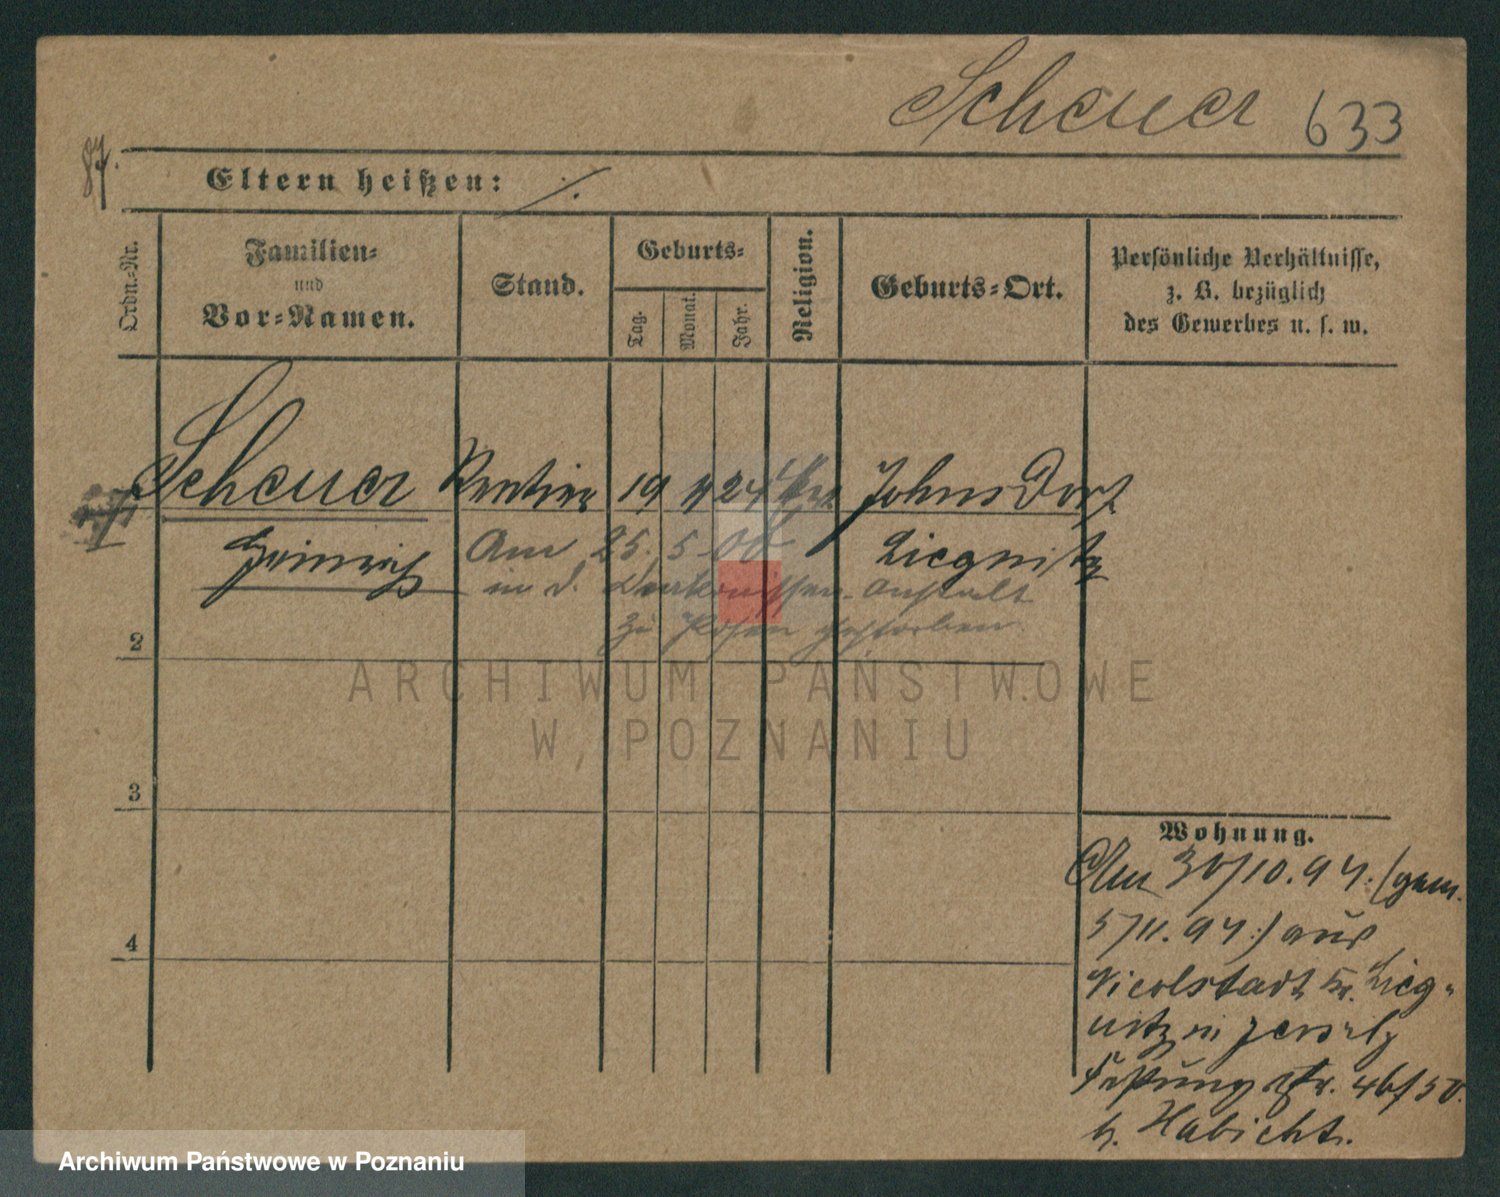 Scheuer 633
87.
Eltern heißen: ./.
Ordn.-Nr.
Familien-
und
Vor-Namen.
Stand.
Geburts-
Tag.
Monat.
Jahr.
Religion.
Geburts-Ort.
Persönliche Verhältnisse,
z. B. bezüglich
des Gewerbes u. s. w.
Scheuer Rentier 19 4 24 Johnsdorf
Heinrich Liegnitz
Am 25. 5. 00
in d. Diakonissen-Anstalt
zu Posen gestorben
2
3
4
Wohnung.
Am 30/10. 94. (gem.
5/11. 94.) aus
Nicolstadt Kr. Lieg-
nitz n. Jersitz
46/50.
b. Habicht.
ARCHIWUM PAŃSTWOWE
W POZNANIU
Archiwum Państwowe w Poznaniu